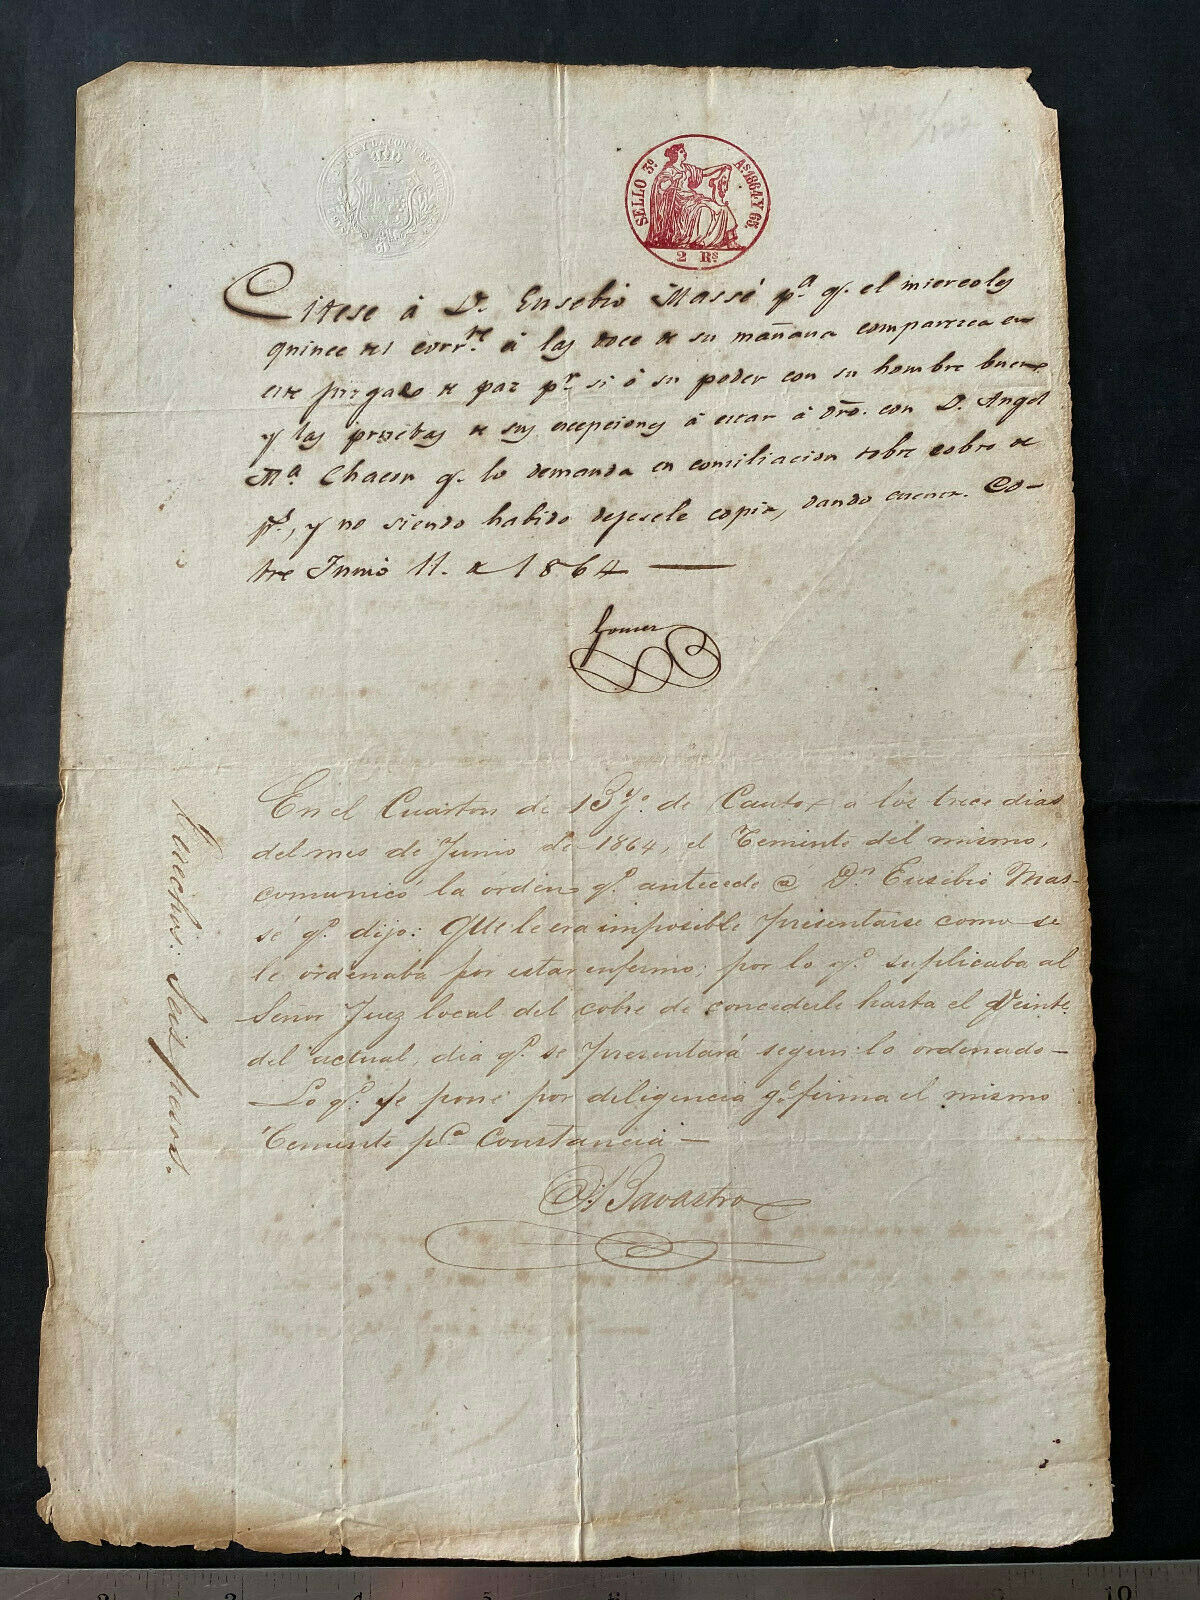 SELLO 3º Aˢ 1864 Y 65.
2 Rˢ
Citese á D. Eusebio Massé pª q. el miercoles
quince del corrᵗᵉ á las doce de su mañana comparezca en
este juzgado de paz pʳ si ó su poder con su hombre bueno
y las pruebas de sus excepciones á estar á dro. con D. Angel
Mª Chacon q. lo demanda en conciliacion sobre cobro de
pˢ, y no siendo habido dejesele copia, dando cuenta. Co-
bre Junio 11. de 1864 —
Gomez
En el Cuarton de Bº de Cauto, a los trece dias
del mes de Junio de 1864, el Teniente del mismo,
comunicó la orden qᵉ antecede a Dⁿ Eusebio Mas-
sé qᵉ dijo: Que le era imposible presentarse como se
le ordenaba por estar enfermo; por lo qᵉ suplicaba al
Señor Juez local del cobre de concederle hasta el Veinte
del actual, dia qᵉ se presentará segun lo ordenado—
Lo qᵉ se pone por diligencia qᵉ firma el mismo
Teniente pª constancia—
Savastro
Derechos: